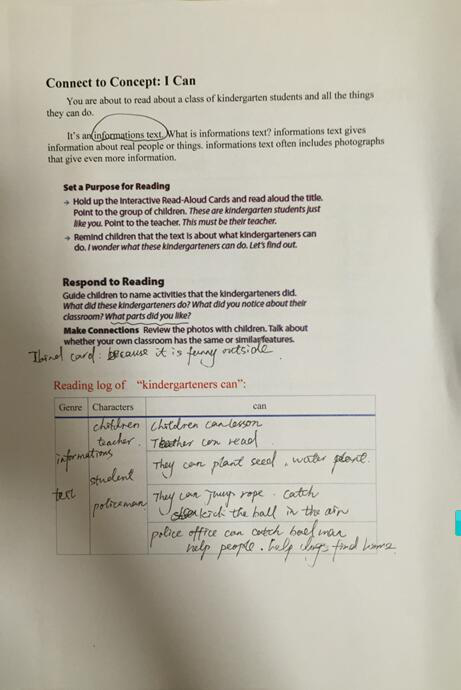 Connect to Concept: I Can
You are about to read about a class of kindergarten students and all the things
they can do.
It's an informations text. What is informations text? informations text gives
information about real people or things. informations text often includes photographs
that give even more information.
Set a Purpose for Reading
→ Hold up the Interactive Read-Aloud Cards and read aloud the title.
Point to the group of children. These are kindergarten students just
like you. Point to the teacher. This must be their teacher.
→ Remind children that the text is about what kindergarteners can
do. I wonder what these kindergarteners can do. Let's find out.
Respond to Reading
Guide children to name activities that the kindergarteners did.
What did these kindergarteners do? What did you notice about their
classroom? What parts did you like?
Make Connections Review the photos with children. Talk about
whether your own classroom has the same or similar features.
card: because it is funny outside.
Reading log of "kindergarteners can":
Genre Characters can
children children can lesson
teacher. Teather can read
informations They can plant seed, water plant.
student
text They can jump rope. catch
policeman kick the ball in the air
police office can catch bad man
help people. help dogs find home